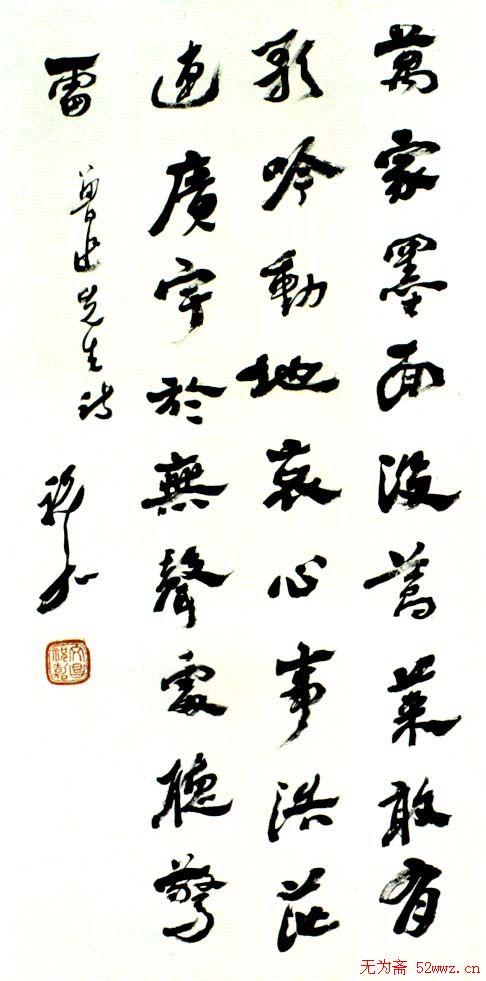 萬家墨面沒蒿萊敢有
歌吟動地哀心事浩茫
連廣宇於無聲處聽驚
雷 魯迅先生詩 祝嘉
文昌祝嘉
无为斋 52wwz.cn